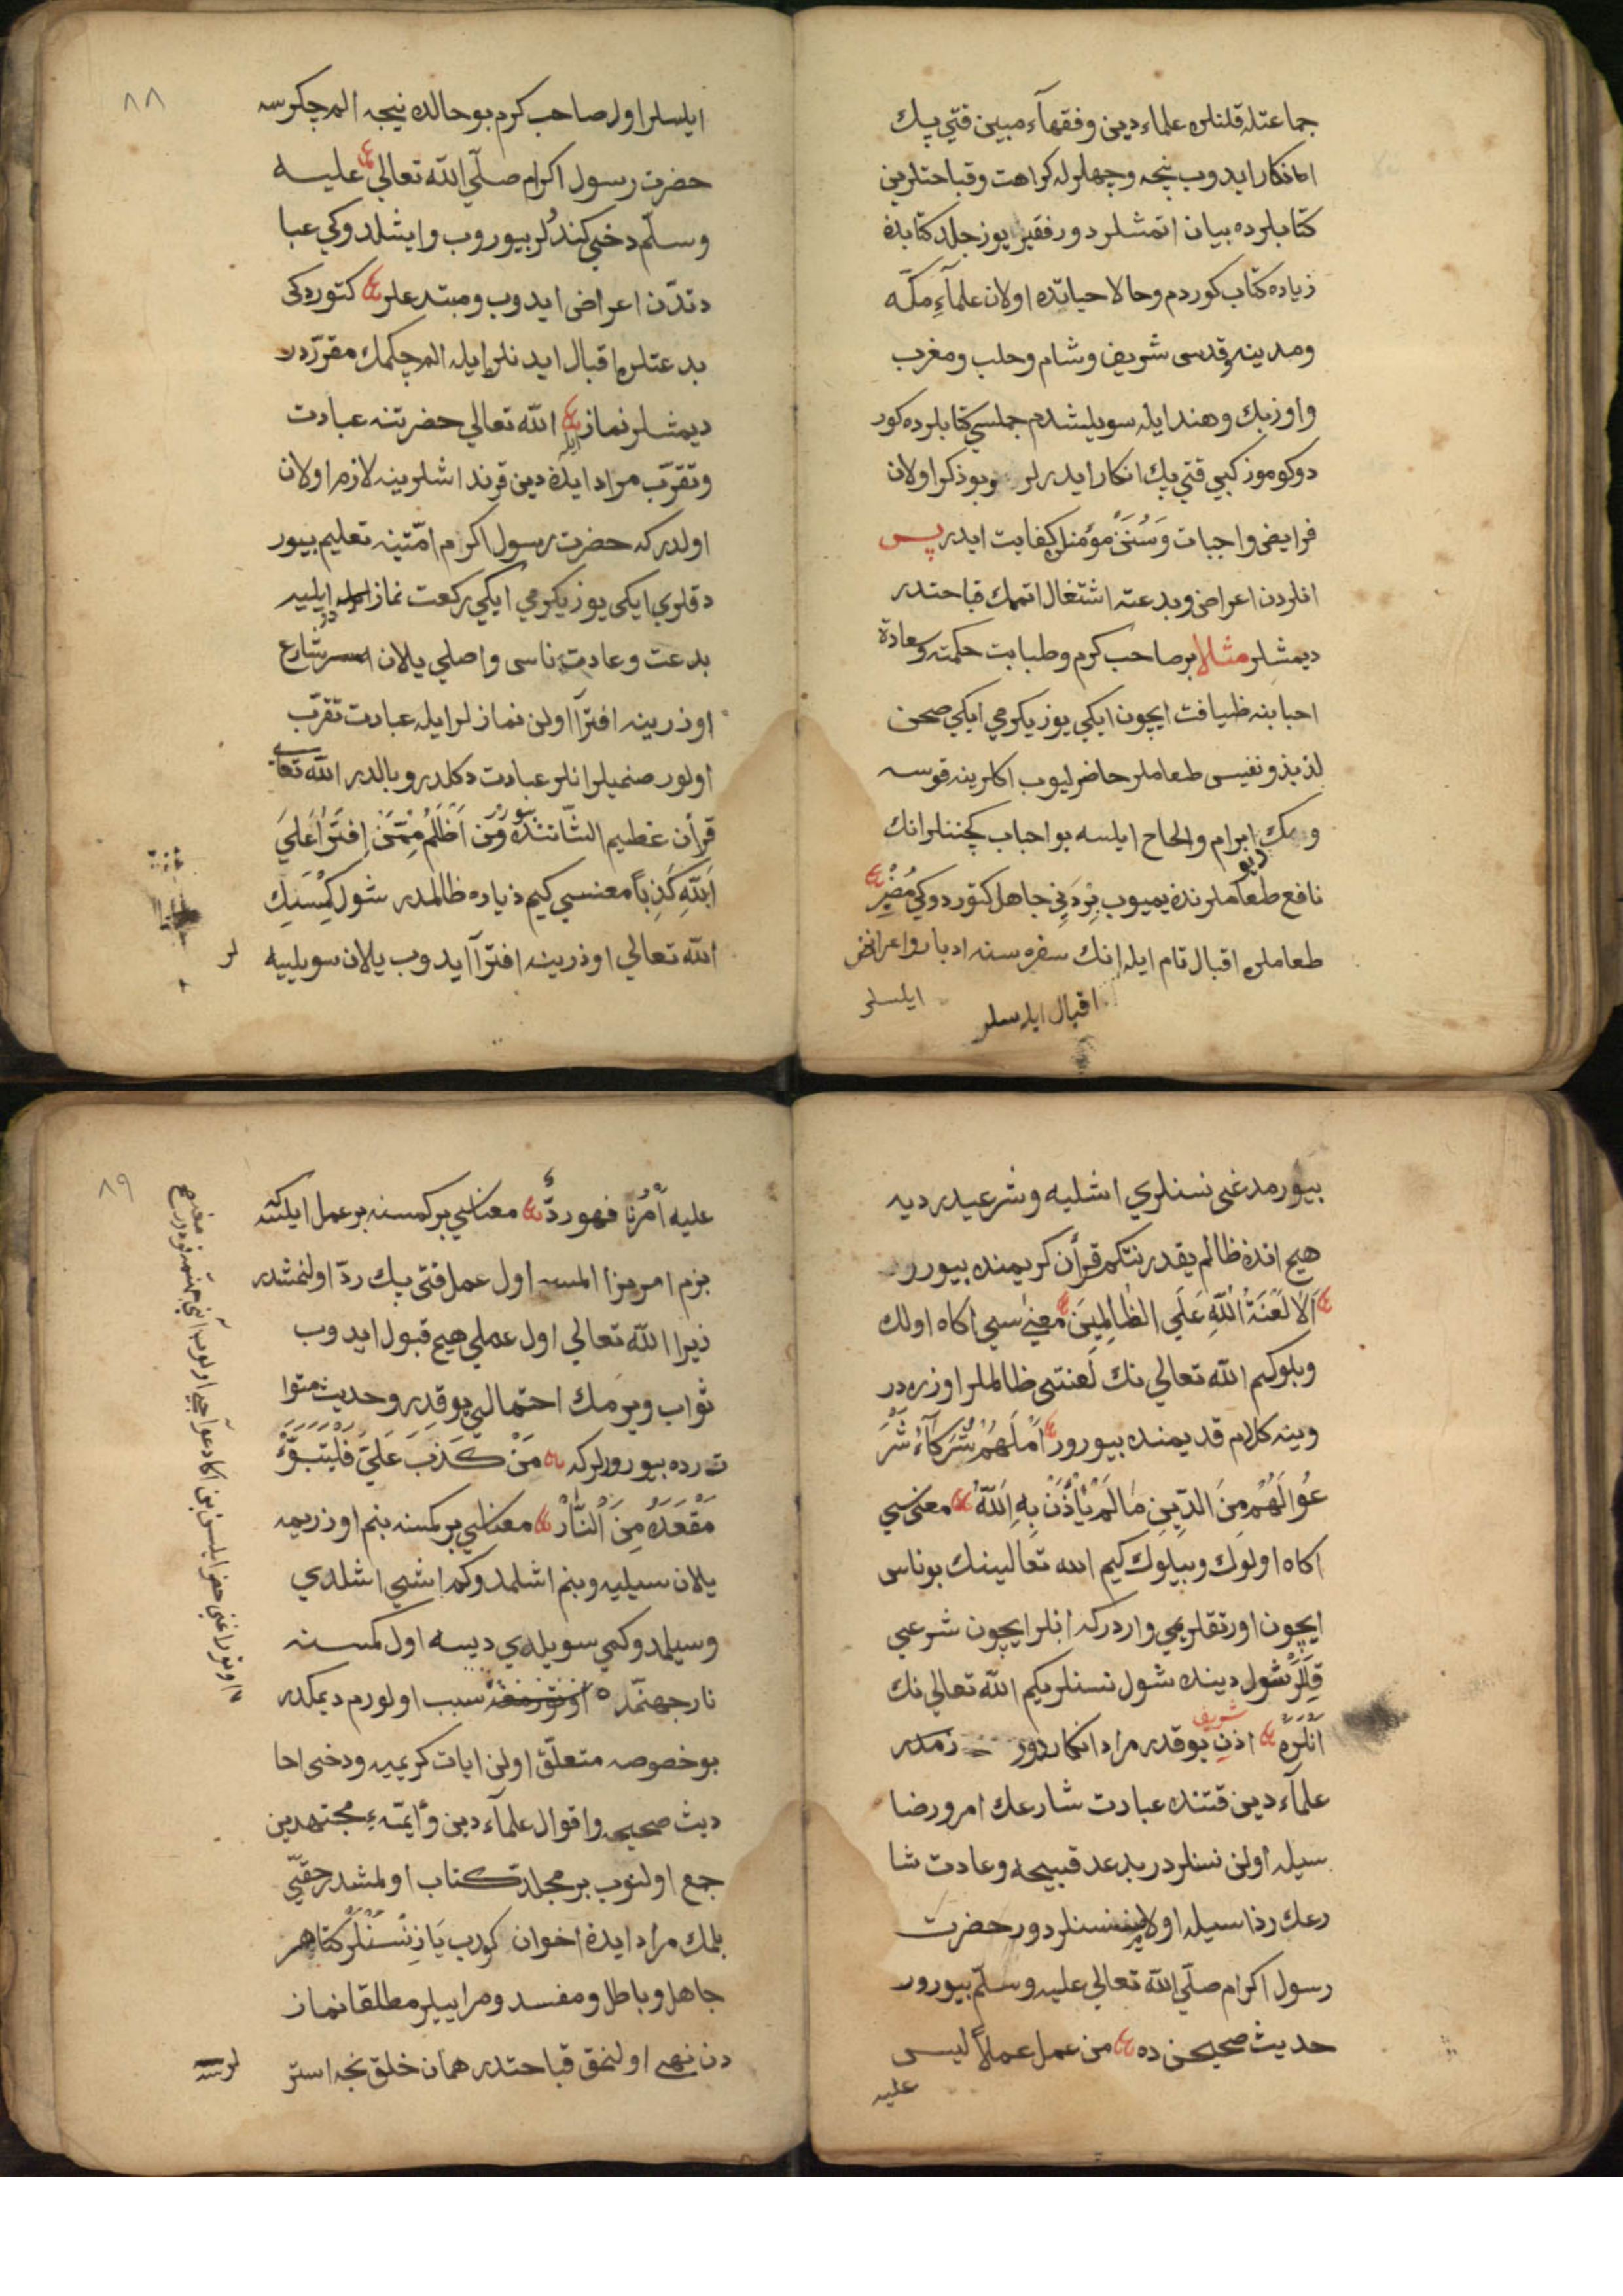 جماعتله قلنلره علماء دين وفقهآء مبين قتي پك
انكار ايدوب نيجه وجهلرله كراهت وقباحتلرين
كتابلرده بيان اتمشلردور فقير يوز جلد كتابدن
زياده كتاب كوردم وحالا حياتده اولان علمآءِ مكّه
ومدينه وقدسى شريف وشام وحلب ومغرب
واوزبك وهند ايله سويلشدم جملسي كتابلرده كور
دوكوموز كبي قتي پك انكار ايدرلر وبو ذكر اولان
فرايض واجبات وَسُنَنْ مؤمنلره كفايت ايدر پس
انلردن اعراض وبدعته اشتغال اتمك قباحتدر
ديمشلر مثالا بر صاحب كرم وطبابت حكمته وعادة
احبابنه ضيافت ايچون ايكي يوز يكرمي ايكي صحن
لذيذ ونفيس طعاملر حاضرليوب اكلرينه قوسه
ويمك ابرام والحاح ايلسه بو احباب كچننلر انك
نافع طعاملرندن يميوب بِرْدَنِي جاهل كتوردوكي مُضْرِ
طعاملره اقبال تام ايله انك سفره سنه ادبار واعراض
اقبال ايلسلر
ايلسلر
٨٨
ايلسلر اول صاحب كرم بو حالده نيجه الم چكرسه
حضرت رسول اكرام صلّي الله تعالي عليه
وسلّم دخي كندُلر بيوروب وايشلدوكي عبا
دتدّن اعراض ايدوب ومبتدعلر كتوردكى
بدعتلره اقبال ايدنلر ايله الم چكمك مقرّردر
ديمشلر نماز الله تعالي حضرتنه عبادت
وتقرّب مراد ايدن دين قرنداشلرينه لازم اولان
اولدركه حضرت رسول اكرم امّتينه تعليم بيور
دقلري ايكى يوز يكرمي ايكي ركعت نماز ايليه
بدعت وعادت ناسى واصلي يلان شارع
اوذرينه افترآ اولن نمازلر ايله عبادت تقرّب
اولور صنميلر انلر عبادت دكلدر وبالدر الله تعالى
قرأن عظيم الشّاننده بيورر وَمَن اَظْلَمُ مِمَّنْ اِفتَرٰا عَلَيَ
اَللّهِ كَذِباً معنسي كيم ذياده ظالمدر شول كِمْسَنِك
الله تعالي اوذرينه افترآ ايدوب يلان سويلييه
لر
بيورمدغى نسنلري اشليه وشرعيدر ديه
هيچ اندن ظالم يقدر نتكم قرأن كريمنده بيورر
اَلَا لَعْنَةُ اللّهِ عَلَي الظَّالِمِيَن معنٰي سي اكاه اولك
وبلوكيم الله تعالي نك لَعنتى ظالملر اوزره در
وينه كلام قديمنده بيورور اَمْ لَهُمْ شُرَكَآءُ شَرَ
عُوا لَهُمْ مِنَ الدِّينِ مَا لَمْ يَأْذَنْ بِهِ اَللّهُ معنى سي
اكاه اولوك وبيلوك كيم الله تعالينك بو ناس
ايچون اورتقلريمي واردركه انلر ايچون شرعي
قِلَرْ شول دينده شول نسنلريكيم الله تعالي نك
اَنْلَرَه اذنِ شريف يوقدر مراد انكاردور
علمآء دين قتنده عبادت شارعك امر ورضا
سيله اولن نسنلردر بدعد قبيحه وعادت شا
رعك رذاسيله اولاين نسنلردور حضرت
رسول اكرام صلّي الله تعالي عليه وسلّم بيورور
حديث صحيحن ده من عمل عملاً ليس
عليه
٨٩
عليه اَمْرُنَا فهو ردٌّ معناسي بر كمسنه بر عمل ايلسه كه
بزم امرمزا المسه اول عمل قتى پك ردّ اولنمشدر
ذيرا الله تعالي اول عملي هيچ قبول ايدوب
ثواب ويرمك احتمالي يوقدر وحديث متوا
تر ده بيورورلركه مَنْ كَذَبَ عَلَيَ فَلْيَتَبَوَّءْ
مَقْعَدَهُ مِنَ اَلنّاَرْ معناسي بر كمسنه بنم اوذريمه
يلان سيليه وبنم اشلمدوكم اشي اشلدي
وسيلمدوكمي سويلدي ديسه اول كمسنه
نار جهنّمده سبب اولورم ديمكدر
بو خصوصه متعلّق اولن ايات كريميه ودخى احا
ديث صحيحه واقوال علمآء دين وأيمّهءِ مجتهدين
جمع اولنوب بر مجلد كتاب اولمشدر حقيّي
بلمك مراد ايدن اخوان كورب يَازِنْسَنْلَرْ كتابهر
جاهل وباطل ومفسد ومراييلر مطلقا نماز
دن نهي اولنمق قباحتدر همان خلق نجه استر
لرسه